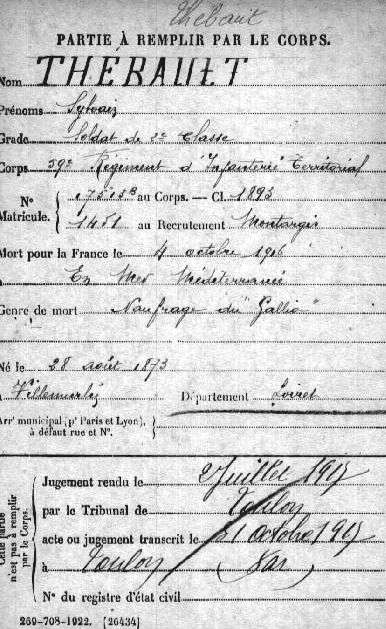 Thébault
PARTIE À REMPLIR PAR LE CORPS.
Nom THÉBAULT
Prénoms Sylvain
Grade Soldat de 2e Classe
Corps 59e Régiment d'Infanterie Territorial
N° Matricule. { 17515B au Corps. — Cl. 1893
1451 au Recrutement Montargis
Mort pour la France le 4 octobre 1916
à En Mer Méditerranée
Genre de mort Naufrage du "Gallia"
Né le 28 août 1873
à Département Loiret
Arr' municipal (p' Paris et Lyon), à défaut rue et N°.
Cette partie n'est pas à remplir par le Corps.
Jugement rendu le 2 Juillet 1917
par le Tribunal de Toulon
acte ou jugement transcrit le 31 octobre 1917
à Toulon (Var)
N° du registre d'état civil
269-708-1922. [26434]